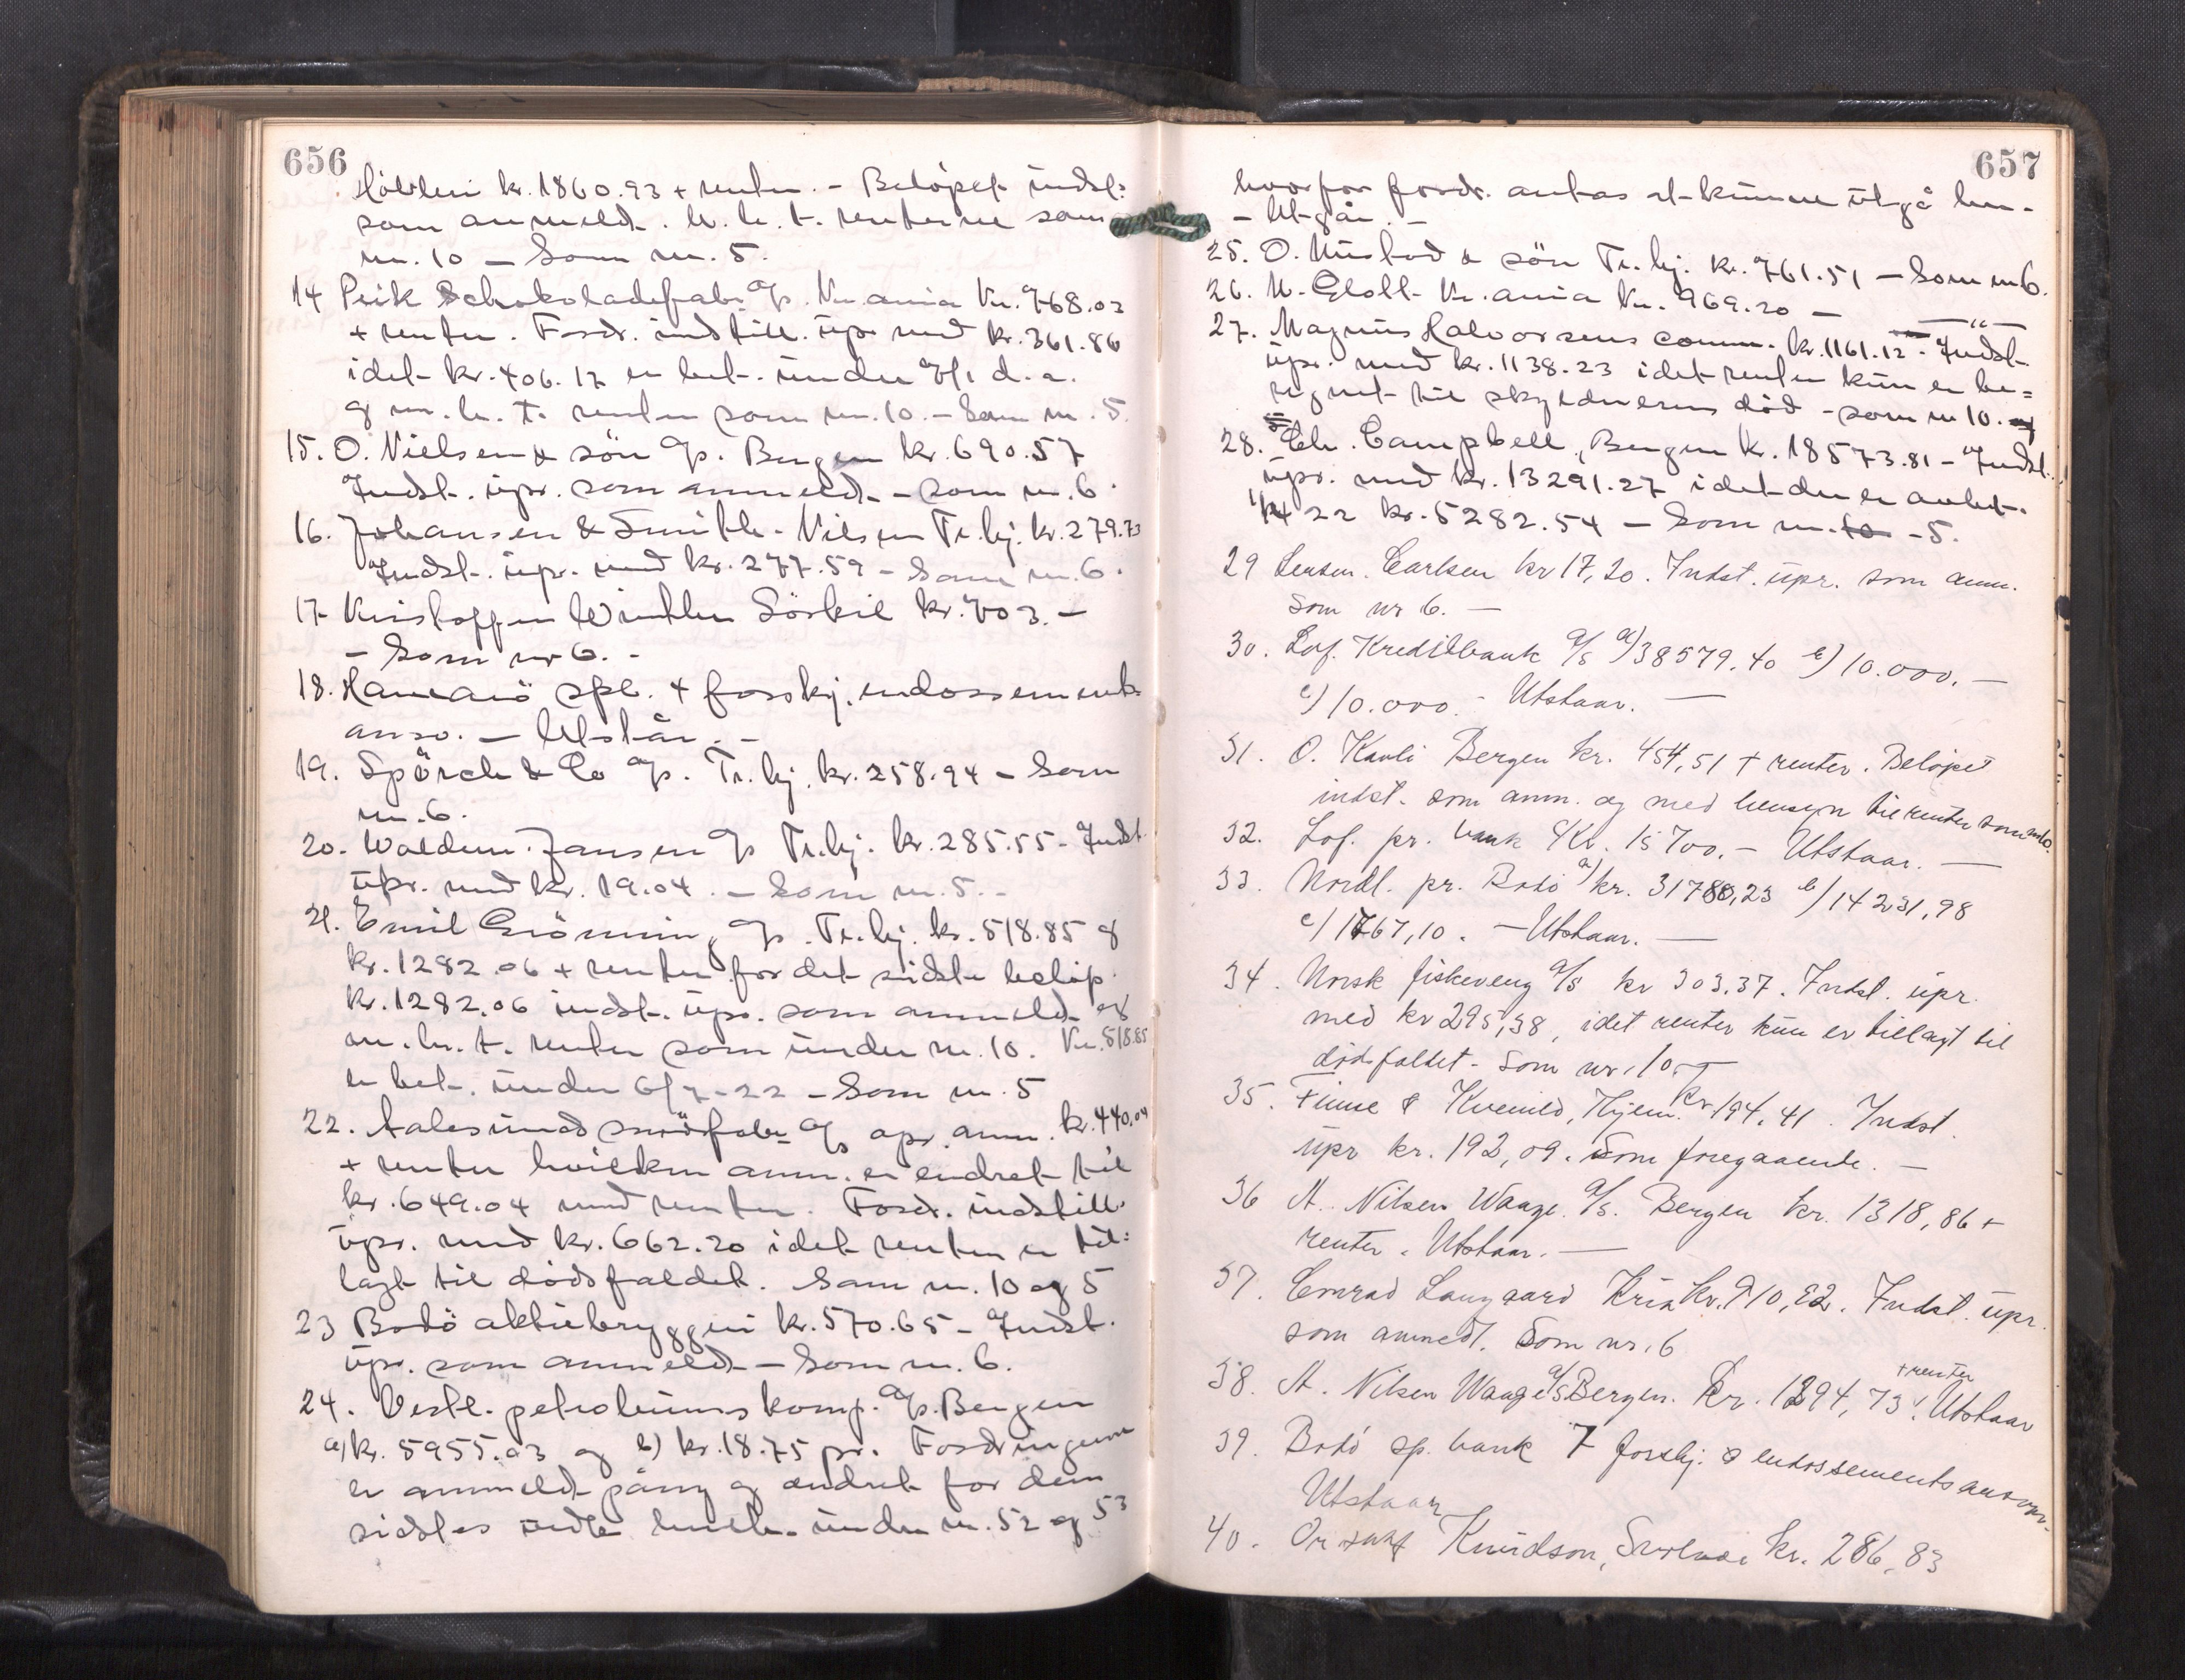 656
kr. 1860.93 + renter. - Beløpet indst:
som anmeldt. M. h. t. renterne som
nr. 10 - Som nr. 5.
14 Peik Schokoladefabr. A/s. Kr.ania Kr. 768.03
+ renter. Fordr. indstill. upr. med kr. 361.86
idet kr. 406.17 er bet. under d. a.
og m. h. t. renter som nr. 10. - Som nr. 5.
15. O. Nielsen & søn A/s. Bergen kr. 690.57
Indst. upr. som anmeldt. - som nr. 6.
16. Johansen & Smith-Nilsen Tr.hj. kr. 279.73
Indst. upr. med kr. 277.59 - Som nr. 6.
17 Kristoffer Winther kr. 703. -
- Som nr 6. -
18. Hamarø spb. 4 forskj. endossements
ansv. - Utstår. -
19. Spörck & Co A/s. Tr.hj. kr. 258.94 - Som
nr. 6.
20. Waldem. Jansen A/s Tr.hj. kr. 285.55 - Indst
upr. med kr. 19.04. - Som nr. 5. -
21. Emil A/s. Tr.hj. kr. 518.85 og
kr. 1282.06 + renter for det sidste beløp.
kr. 1282.06 indst. upr. som anmeldt og
m. h. t. renter som under nr. 10. Kr. 518.85
er bet. under 6/7-22 - Som nr. 5
22. Aalesund smørfabr. A/s opr. anm. kr. 440.04
+ renter hvilken anm. er endret til
kr. 649.04 med renter. Fordr. indstill.
upr. med kr. 662.20 idet renten er til:
lagt til dødsfaldet. Som nr. 10 og 5
23 Bodö aktiebryggeri kr. 570.65 - Indst.
upr. som anmeldt - Som nr. 6.
24. Vestl. petroleumskomp. A/s. Bergen
a) kr. 5955.03 og b) kr. 18.75 pr. Fordringerne
er anmeldt påny og ændret for den
sidstes under nr. 52 og 53
657
hvorfor fordr. antas at kunne utgå her.
- Utgår. -
25. O. Mustad & søn Tr.hj. kr. 761.51 - Som nr 6.
26. M. Kr.ania Kr. 969.20 - — " —
27. Magnus Halvorsens comm. kr. 1161.12. Indst.
upr. med kr. 1138.23 idet renter kun er be=
regnet til skyldnerens død - som nr 10.
28. Chr. Campbell, Bergen kr. 18573.81 - Indst.
upr. med kr. 13291.27 idet der er avbet.
22 kr. 5282.54 - Som nr. 10 - 5.
29 Carlsen kr 17,20. Indst. upr. som anm.
Som nr 6. —
30. Lof. Kreditbank A/s a) 38579,40 b) 10.000. —
c) 10.000. - Utstaar. —
31. O. Kavli Bergen kr. 454,51 + renter. Beløpet
indst. som anm. og med hensyn til renter som nr 10.
32. Lof. pr. bank Kr. 15700. - Utstaar. —
33. Nordl. pr. Bodö a) kr. 31780,23 b) 14231,98
c) 1767,10. - Utstaar. —
34. Norsk fiskeveng A/s kr 303.37. Indst. upr.
med kr 295,38, idet renter kun er tillagt til
dødsfaldet - Som nr. 10. —
35. Finne & Kvenild, Thjem. Kr 194.41. Indst.
upr kr. 192,09. Som foregaaende. —
36 A. Nilsen Waage A/s. Bergen kr. 1318,86 +
renter. Utstaar. —
37. Conrad Langaard Kria Kr. 910,82. Indst. upr.
som anmeldt. Som nr. 6
38. A. Nilsen Waage A/s Bergen. Kr. 1294,73 + renter. Utstaar
39. Bodö sp. bank 7 forskj. endossementsansvar.
Utstaar
40. Knudson, Svolvær kr. 286,83